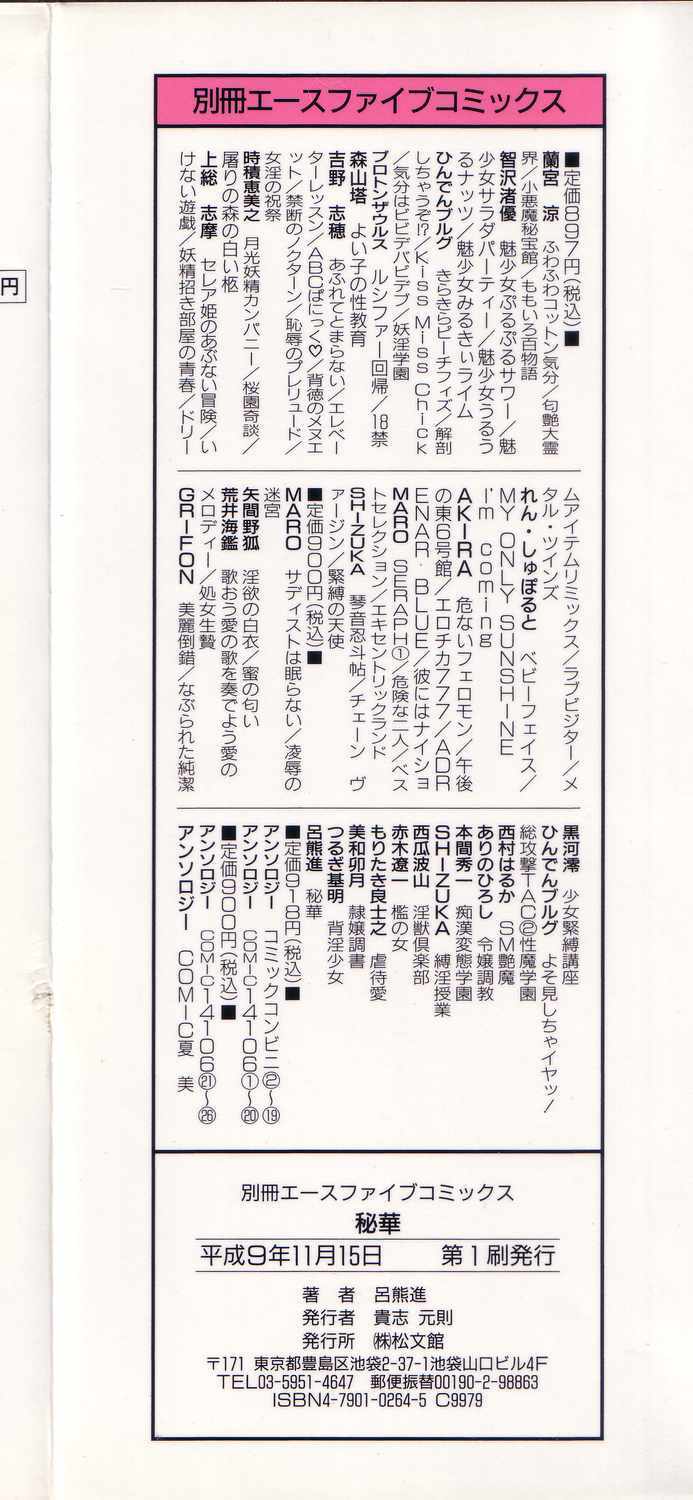 円
別冊エースファイブコミックス
■定価897円(税込)■
蘭宮 涼 ふわふわコットン気分/匂艶大霊
界/小悪魔秘宝館/ももいろ百物語
智沢渚優 魅少女ぷるぷるサワー/魅
少女サラダパーティー/魅少女うるう
るナッツ/魅少女みるきぃライム
ひんでんブルグ きらきらピーチフィズ/解剖
しちゃうぞ!?/Kiss Miss Chick
/気分はビビデバビデブ/妖淫学園
ブロトンザウルス ルシファー回帰/18禁
森山塔 よい子の性教育
吉野 志穂 あふれてとまらない/エレベー
ターレッスン/ABCぱにっく♡/背徳のメヌエ
ット/禁断のノクターン/恥辱のプレリュード/
女淫の祝祭
時積恵美之 月光妖精カンパニー/桜園奇談/
屠りの森の白い柩
上総 志摩 セレア姫のあぶない冒険/い
けない遊戯/妖精招き部屋の青春/ドリー
ムアイテムリミックス/ラブビジター/メ
タル・ツインズ
れん・しゅぽると ベビーフェイス/
MY ONLY SUNSHINE
I'm coming
AKIRA 危ないフェロモン/午後
の東6号館/エロチカ777/ADR
ENAR BLUE/彼にはナイショ
MARO SERAPH①/危険な二人/ベス
トセレクション/エキセントリックランド
SHIZUKA 琴音忍斗帖/チェーン ヴ
ァージン/緊縛の天使
■定価900円(税込)■
MARO サディストは眠らない/凌辱の
迷宮
矢間野狐 淫欲の白衣/蜜の匂い
荒井海鑑 歌おう愛の歌を奏でよう愛の
メロディー/処女生贄
GRIFON 美麗倒錯/なぶられた純潔
黒河澪 少女緊縛講座
ひんでんブルグ よそ見しちゃイヤッ!
総攻撃TAC②性魔学園
西村はるか SM艶魔
ありのひろし 令嬢調教
本間秀一 痴漢変態学園
SHIZUKA 縛淫授業
西瓜波山 淫獣倶楽部
赤木遼一 檻の女
もりたき良士之 虐待愛
美和卯月 隷嬢調書
つるぎ基明 背淫少女
呂熊進 秘華
■定価918円(税込)■
アンソロジー コミックコンビニ②~⑲
アンソロジー COMIC14106①~⑳
■定価900円(税込)■
アンソロジー COMIC14106㉑~㉖
アンソロジー COMIC夏 美
別冊エースファイブコミックス
秘華
平成9年11月15日 第1刷発行
著 者 呂熊進
発行者 貴志 元則
発行所 ㈱松文館
〒171 東京都豊島区池袋2-37-1池袋山口ビル4F
TEL03-5951-4647 郵便振替00190-2-98863
ISBN4-7901-0264-5 C9979